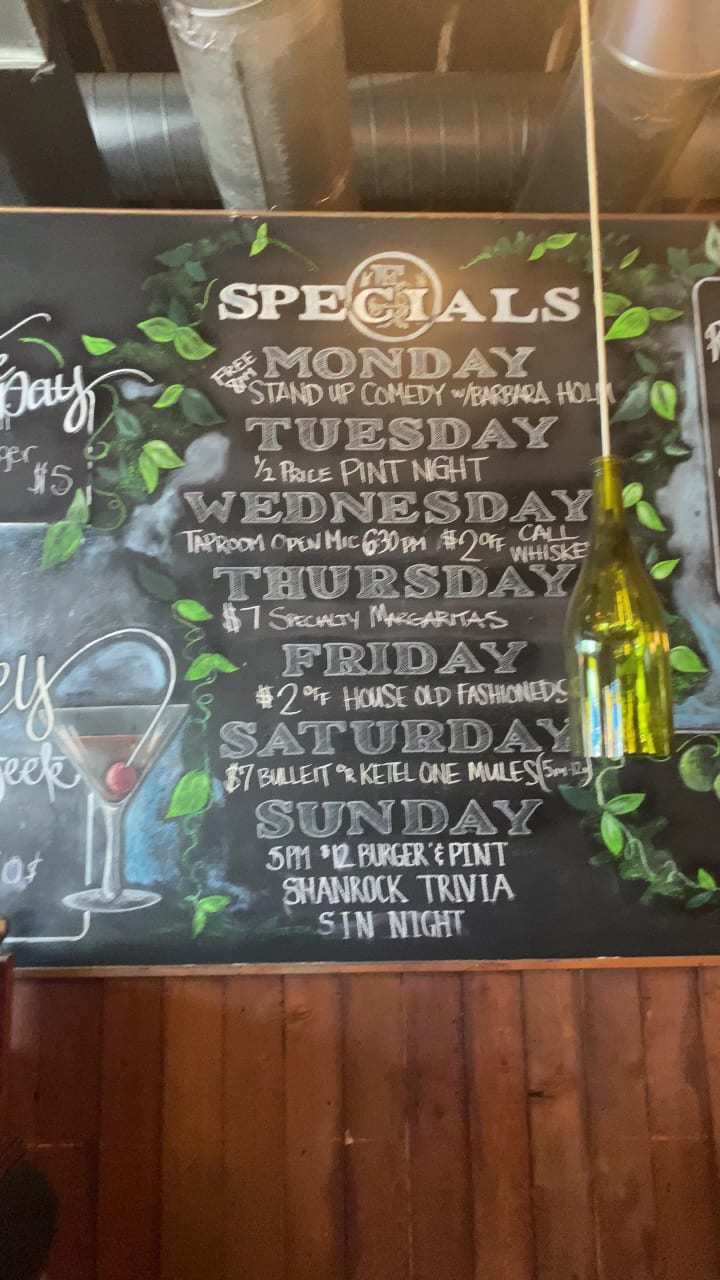 SPECIALS
MONDAY
FREE
8PM
STAND UP COMEDY w/BARBARA HOLM
TUESDAY
1/2 PRICE PINT NIGHT
WEDNESDAY
TAPROOM OPEN MIC 630PM $2 OFF CALL
WHISKE
THURSDAY
$7 SPECIALTY MARGARITAS
FRIDAY
$2 OFF HOUSE OLD FASHIONEDS
SATURDAY
$7 BULLEIT OR KETEL ONE MULES
SUNDAY
5PM $12 BURGER & PINT
SHANROCK TRIVIA
SIN NIGHT
Day
ger
$5
ey
eek
0¢